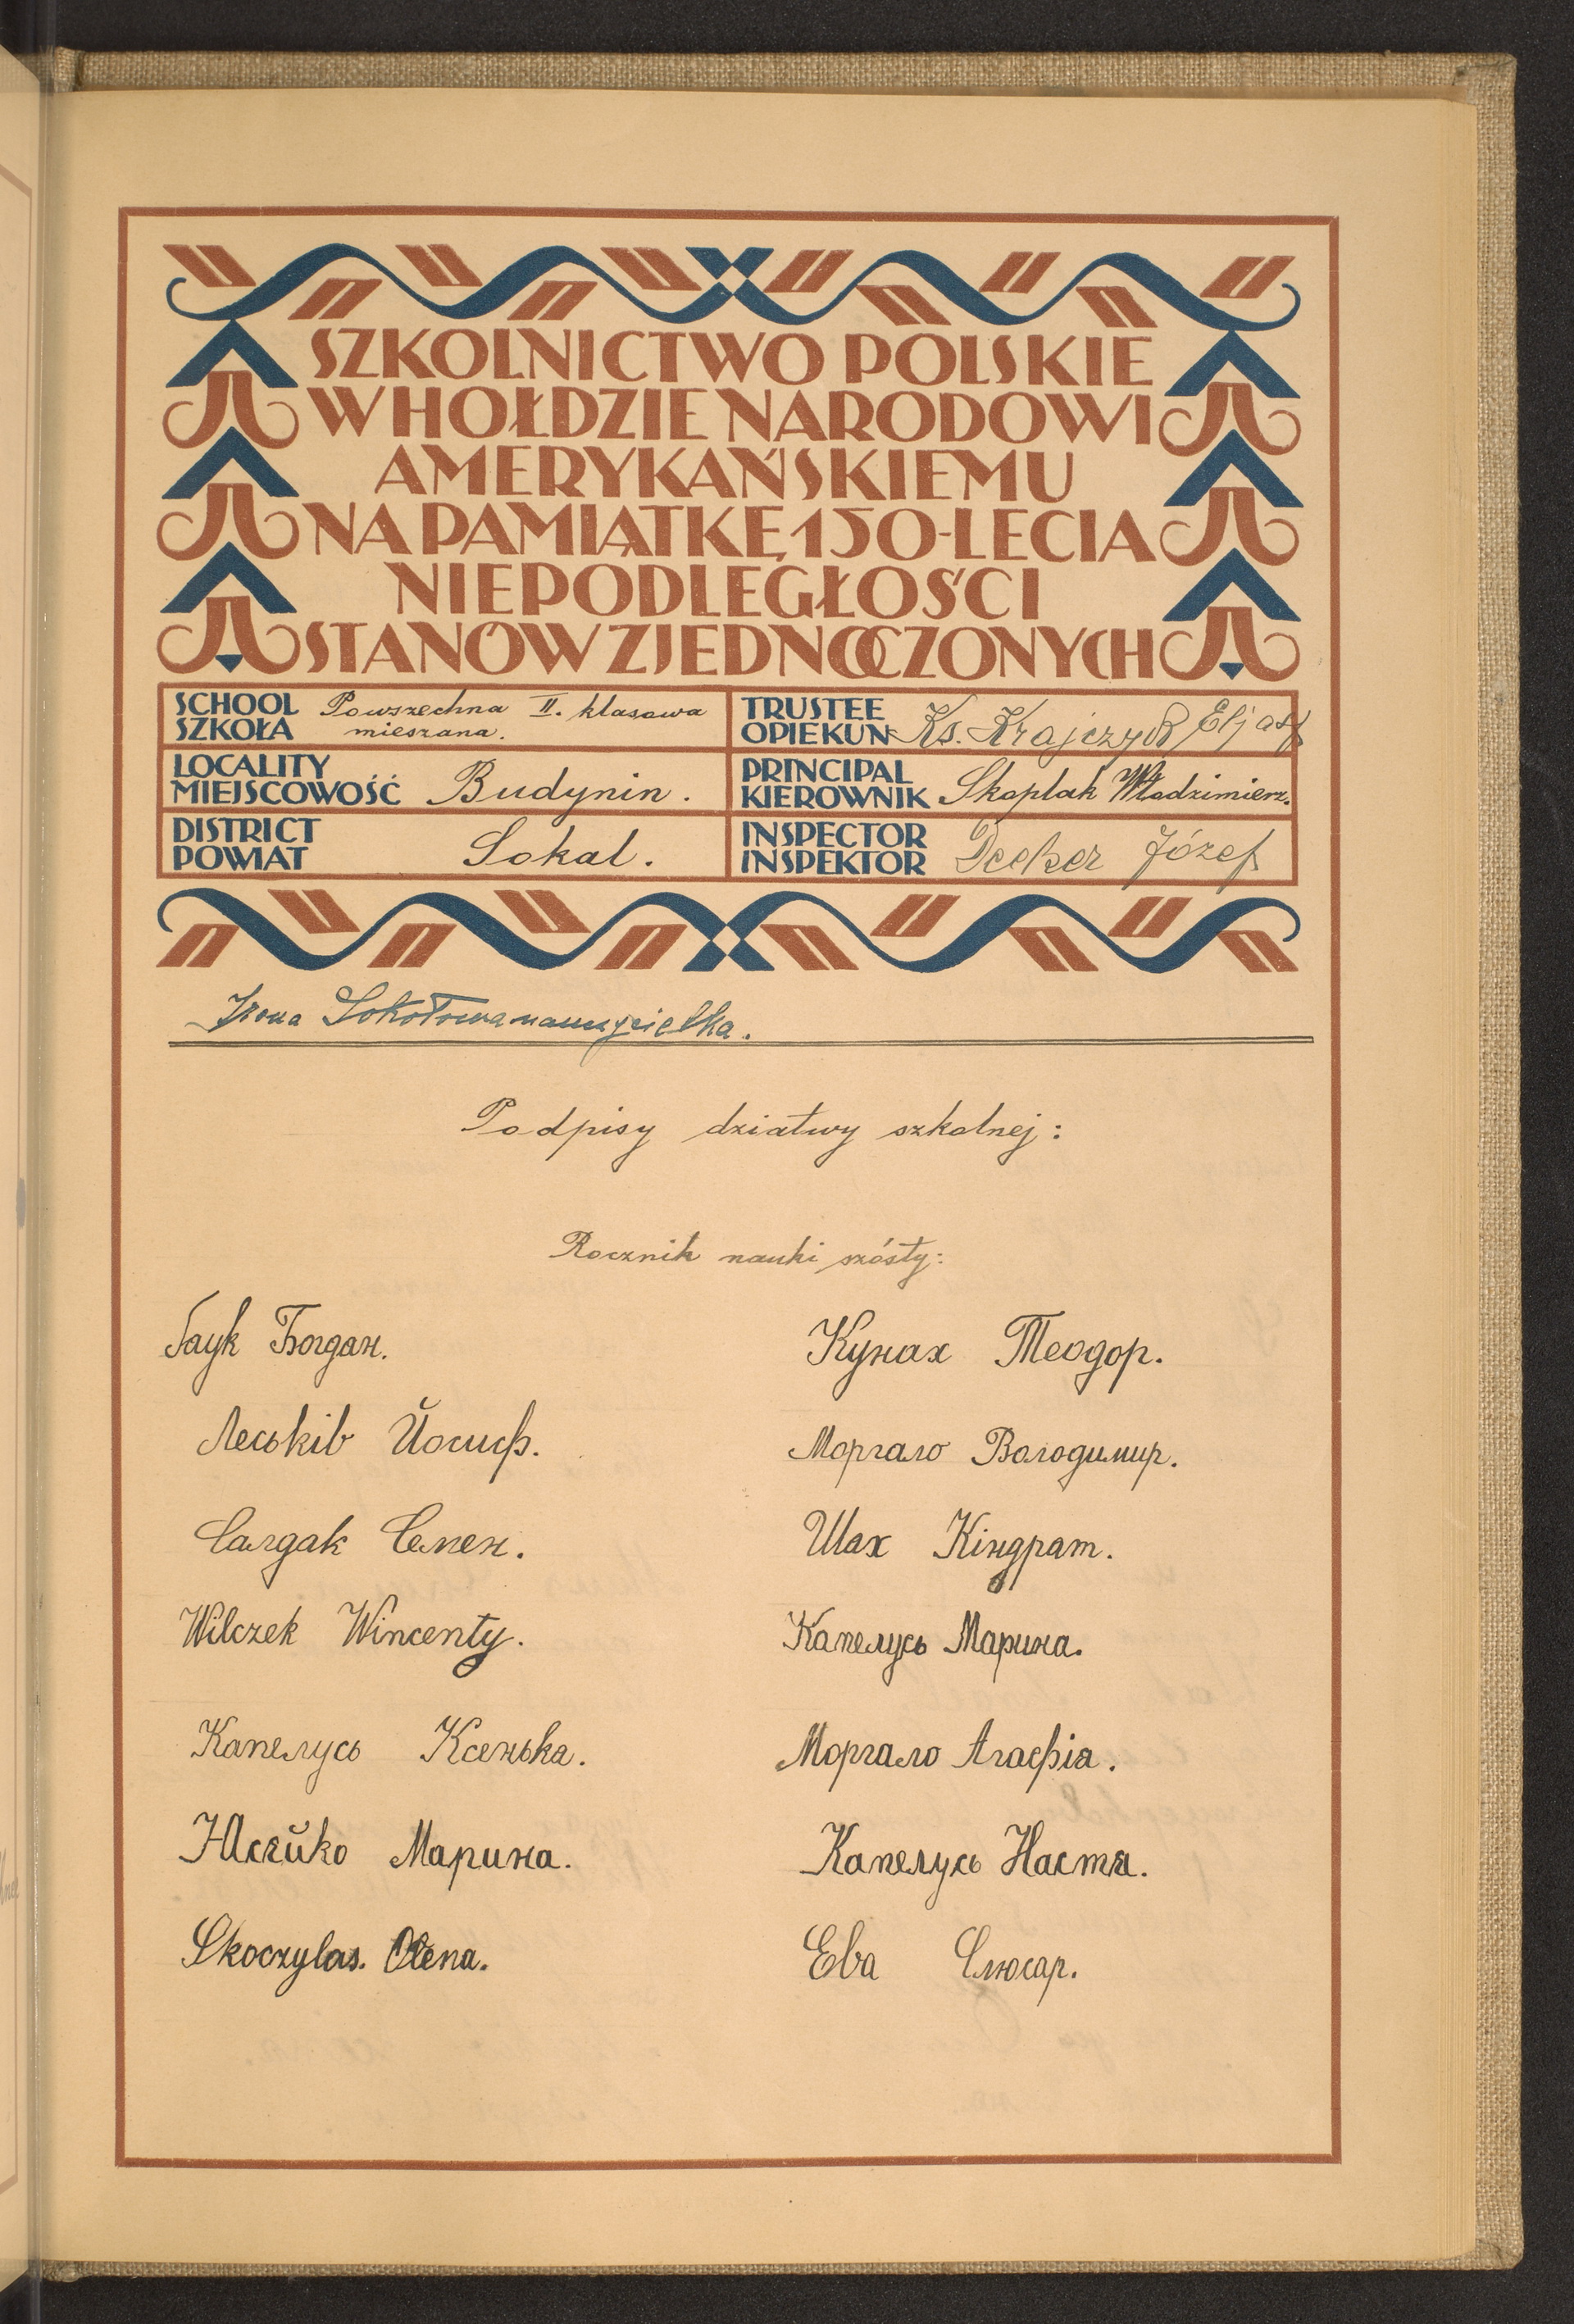 SZKOLNICTWO POLSKIE
W HOŁDZIE NARODOWI
AMERYKAŃSKIEMU
NA PAMIĄTKĘ 150-LECIA
NIEPODLEGŁOŚCI
STANÓW ZJEDNOCZONYCH
SCHOOL
SZKOŁA
Powszechna II. klasowa
mieszana.
TRUSTEE
OPIEKUN
Ks. Krajczyk Eljasz
LOCALITY
MIEJSCOWOŚĆ
Budynin.
PRINCIPAL
KIEROWNIK
Skoplak Włodzimierz.
DISTRICT
POWIAT
Sokal.
INSPECTOR
INSPEKTOR
Decker Józef
Sokołowa nauczycielka.
Podpisy dziatwy szkolnej:
Rocznik nauki szósty:
Гаук Богдан.
Кунах Теодор.
Леськів Йосиф.
Моргало Володимир.
Салдак Семен.
Шах Кіндрат.
Wilczek Wincenty.
Капелусь Марина.
Капелусь Ксенька.
Моргало Агафія.
Марина.
Капелусь Настя.
Skoczylas. Olena.
Ева Слюсар.